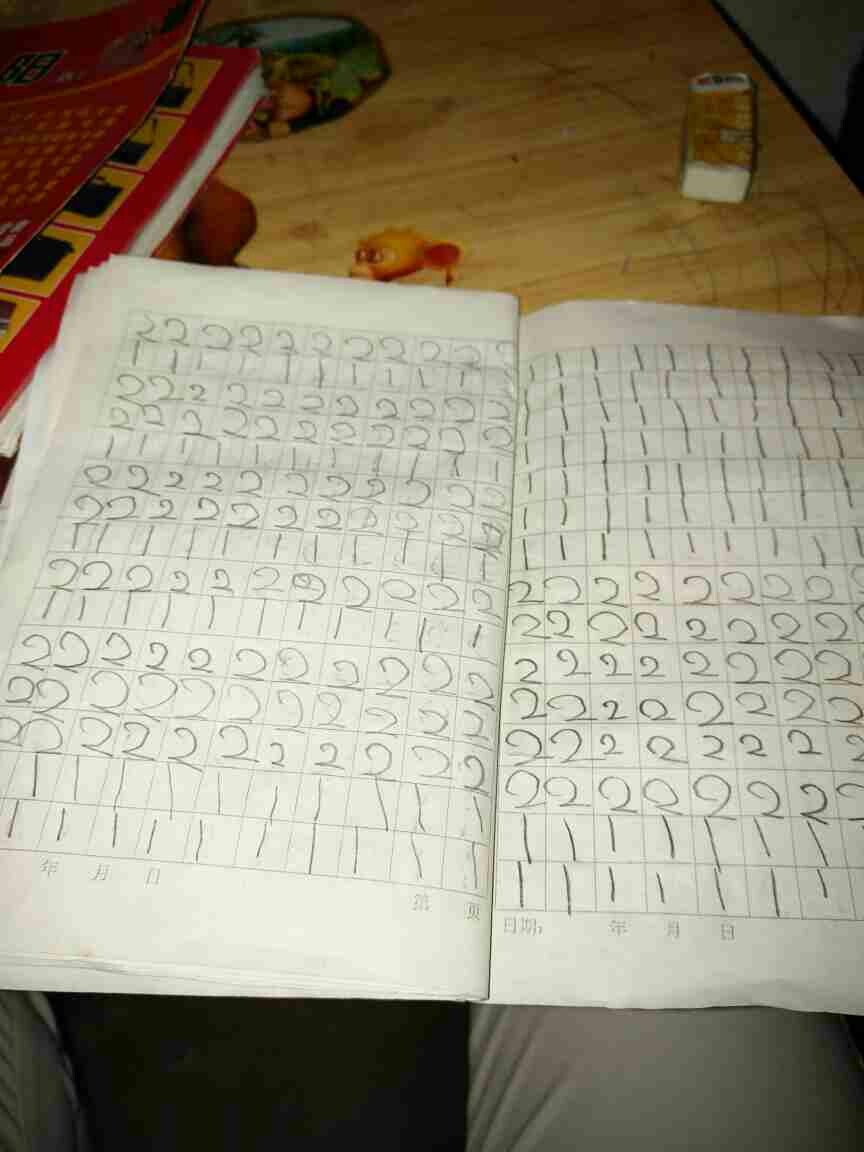 22222222222
1111111111
22222222222
22222222222
11111111111
22222222222
22222222222
11111111111
22222222222
11111111111
22222222222
22222222222
22222222222
11111111111
11111111111
年 月 日
第 页
1111111111
1111111111
1111111111
1111111111
1111111111
111111111
222222222
222222222
22222222
22222222
22222222
22222222
1111111
1111111
日期: 年 月 日